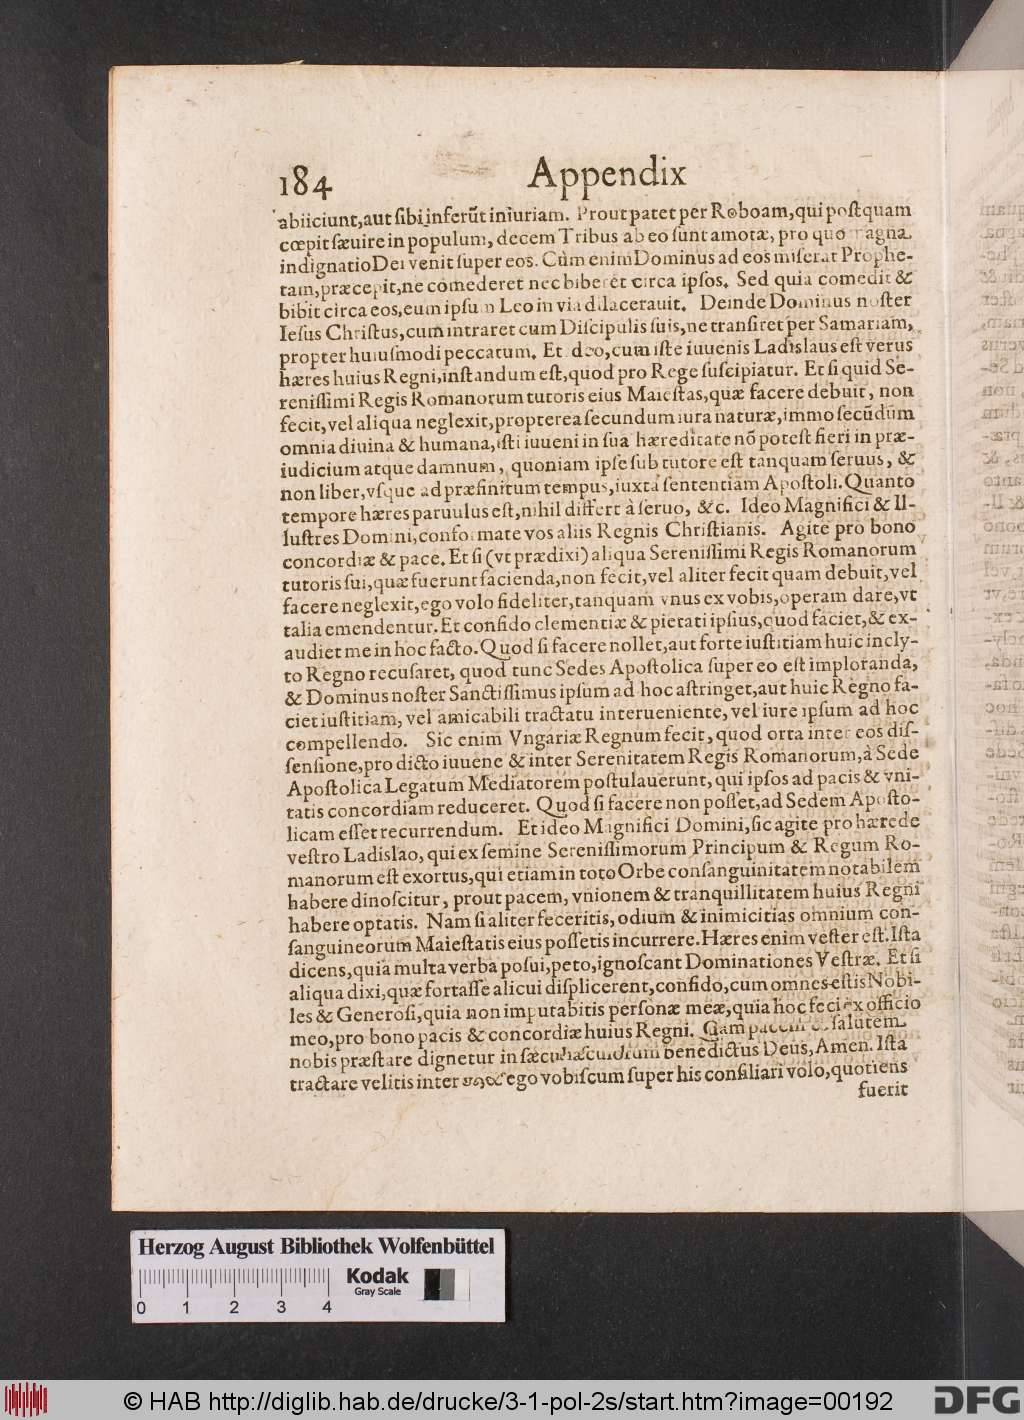 184 Appendix
abiiciunt,aut ſibi inferūt iniuriam. Prout patet per Roboam,qui poſtquam
cœpit ſæuire in populum, decem Tribus ab eo ſunt amotæ, pro quo magna
indignatio Dei venit ſuper eos. Cùm enim Dominus ad eos miſerat Prophe-
tam,præcepit,ne comederet nec biberet circa ipſos. Sed quia comedit &
bibit circa eos,eum ipſum Leo in via dilacerauit. Deinde Dominus noſter
Ieſus Chriſtus,cum intraret cum Diſcipulis ſuis,ne tranſiret per Samariam,
propter huiuſmodi peccatum. Et ideo,cum iſte iuuenis Ladislaus eſt verus
hæres huius Regni,inſtandum eſt,quod pro Rege ſuſcipiatur. Et ſi quid Se-
reniſſimi Regis Romanorum tutoris eius Maieſtas,quæ facere debuit, non
fecit,vel aliqua neglexit,propterea ſecundum iura naturæ,immo ſecūdūm
omnia diuina & humana,iſti iuueni in ſua hæreditate nō poteſt fieri in præ-
iudicium atque damnum, quoniam ipſe ſub tutore eſt tanquam ſeruus, &
non liber,vſque ad præfinitum tempus,iuxta ſententiam Apoſtoli.Quanto
tempore hæres paruulus eſt,nihil differt à ſeruo, &c. Ideo Magnifici & Il-
luſtres Domini,conformate vos aliis Regnis Chriſtianis. Agite pro bono
concordiæ & pace. Et ſi (vt prædixi) aliqua Sereniſſimi Regis Romanorum
tutoris ſui,quæ fuerunt facienda,non fecit,vel aliter fecit quam debuit,vel
facere neglexit,ego volo fideliter,tanquam vnus ex vobis,operam dare,vt
talia emendentur.Et confido clementiæ & pietati ipſius,quod faciet,& ex-
audiet me in hoc facto.Quod ſi facere nollet,aut forte iuſtitiam huic incly-
to Regno recuſaret, quod tunc Sedes Apoſtolica ſuper eo eſt imploranda,
& Dominus noſter Sanctiſſimus ipſum ad hoc aſtringet,aut huic Regno fa-
ciet iuſtitiam, vel amicabili tractatu interueniente, vel iure ipſum ad hoc
compellendo. Sic enim Vngariæ Regnum fecit, quod orta inter eos diſ-
ſenſione,pro dicto iuuene & inter Serenitatem Regis Romanorum,à Sede
Apoſtolica Legatum Mediatorem poſtulauerunt, qui ipſos ad pacis & vni-
tatis concordiam reduceret. Quod ſi facere non poſſet,ad Sedem Apoſto-
licam eſſet recurrendum. Et ideo Magnifici Domini,ſic agite pro hærede
veſtro Ladislao, qui ex ſemine Sereniſſimorum Principum & Regum Ro-
manorum eſt exortus,qui etiam in toto Orbe conſanguinitatem notabilem
habere dinoſcitur, prout pacem, vnionem & tranquillitatem huius Regni
habere optatis. Nam ſi aliter feceritis, odium & inimicitias omnium con-
ſanguineorum Maieſtatis eius poſſetis incurrere.Hæres enim veſter eſt. Iſta
dicens,quia multa verba poſui,peto,ignoſcant Dominationes Veſtræ. Et ſi
aliqua dixi,quæ fortaſſe alicui diſplicerent,confido,cum omnes eſtis Nobi-
les & Generoſi,quia non imputabitis perſonæ meæ,quia hoc feci ex officio
meo,pro bono pacis & concordiæ huius Regni. Quam pacem & ſalutem
nobis præſtare dignetur in ſæcula ſæculorum benedictus Deus, Amen. Iſta
tractare velitis inter vos,& ego vobiſcum ſuper his conſiliari volo,quotiens
fuerit
Herzog August Bibliothek Wolfenbüttel
Kodak
Gray Scale
0 1 2 3 4
© HAB http://diglib.hab.de/drucke/3-1-pol-2s/start.htm?image=00192
DFG